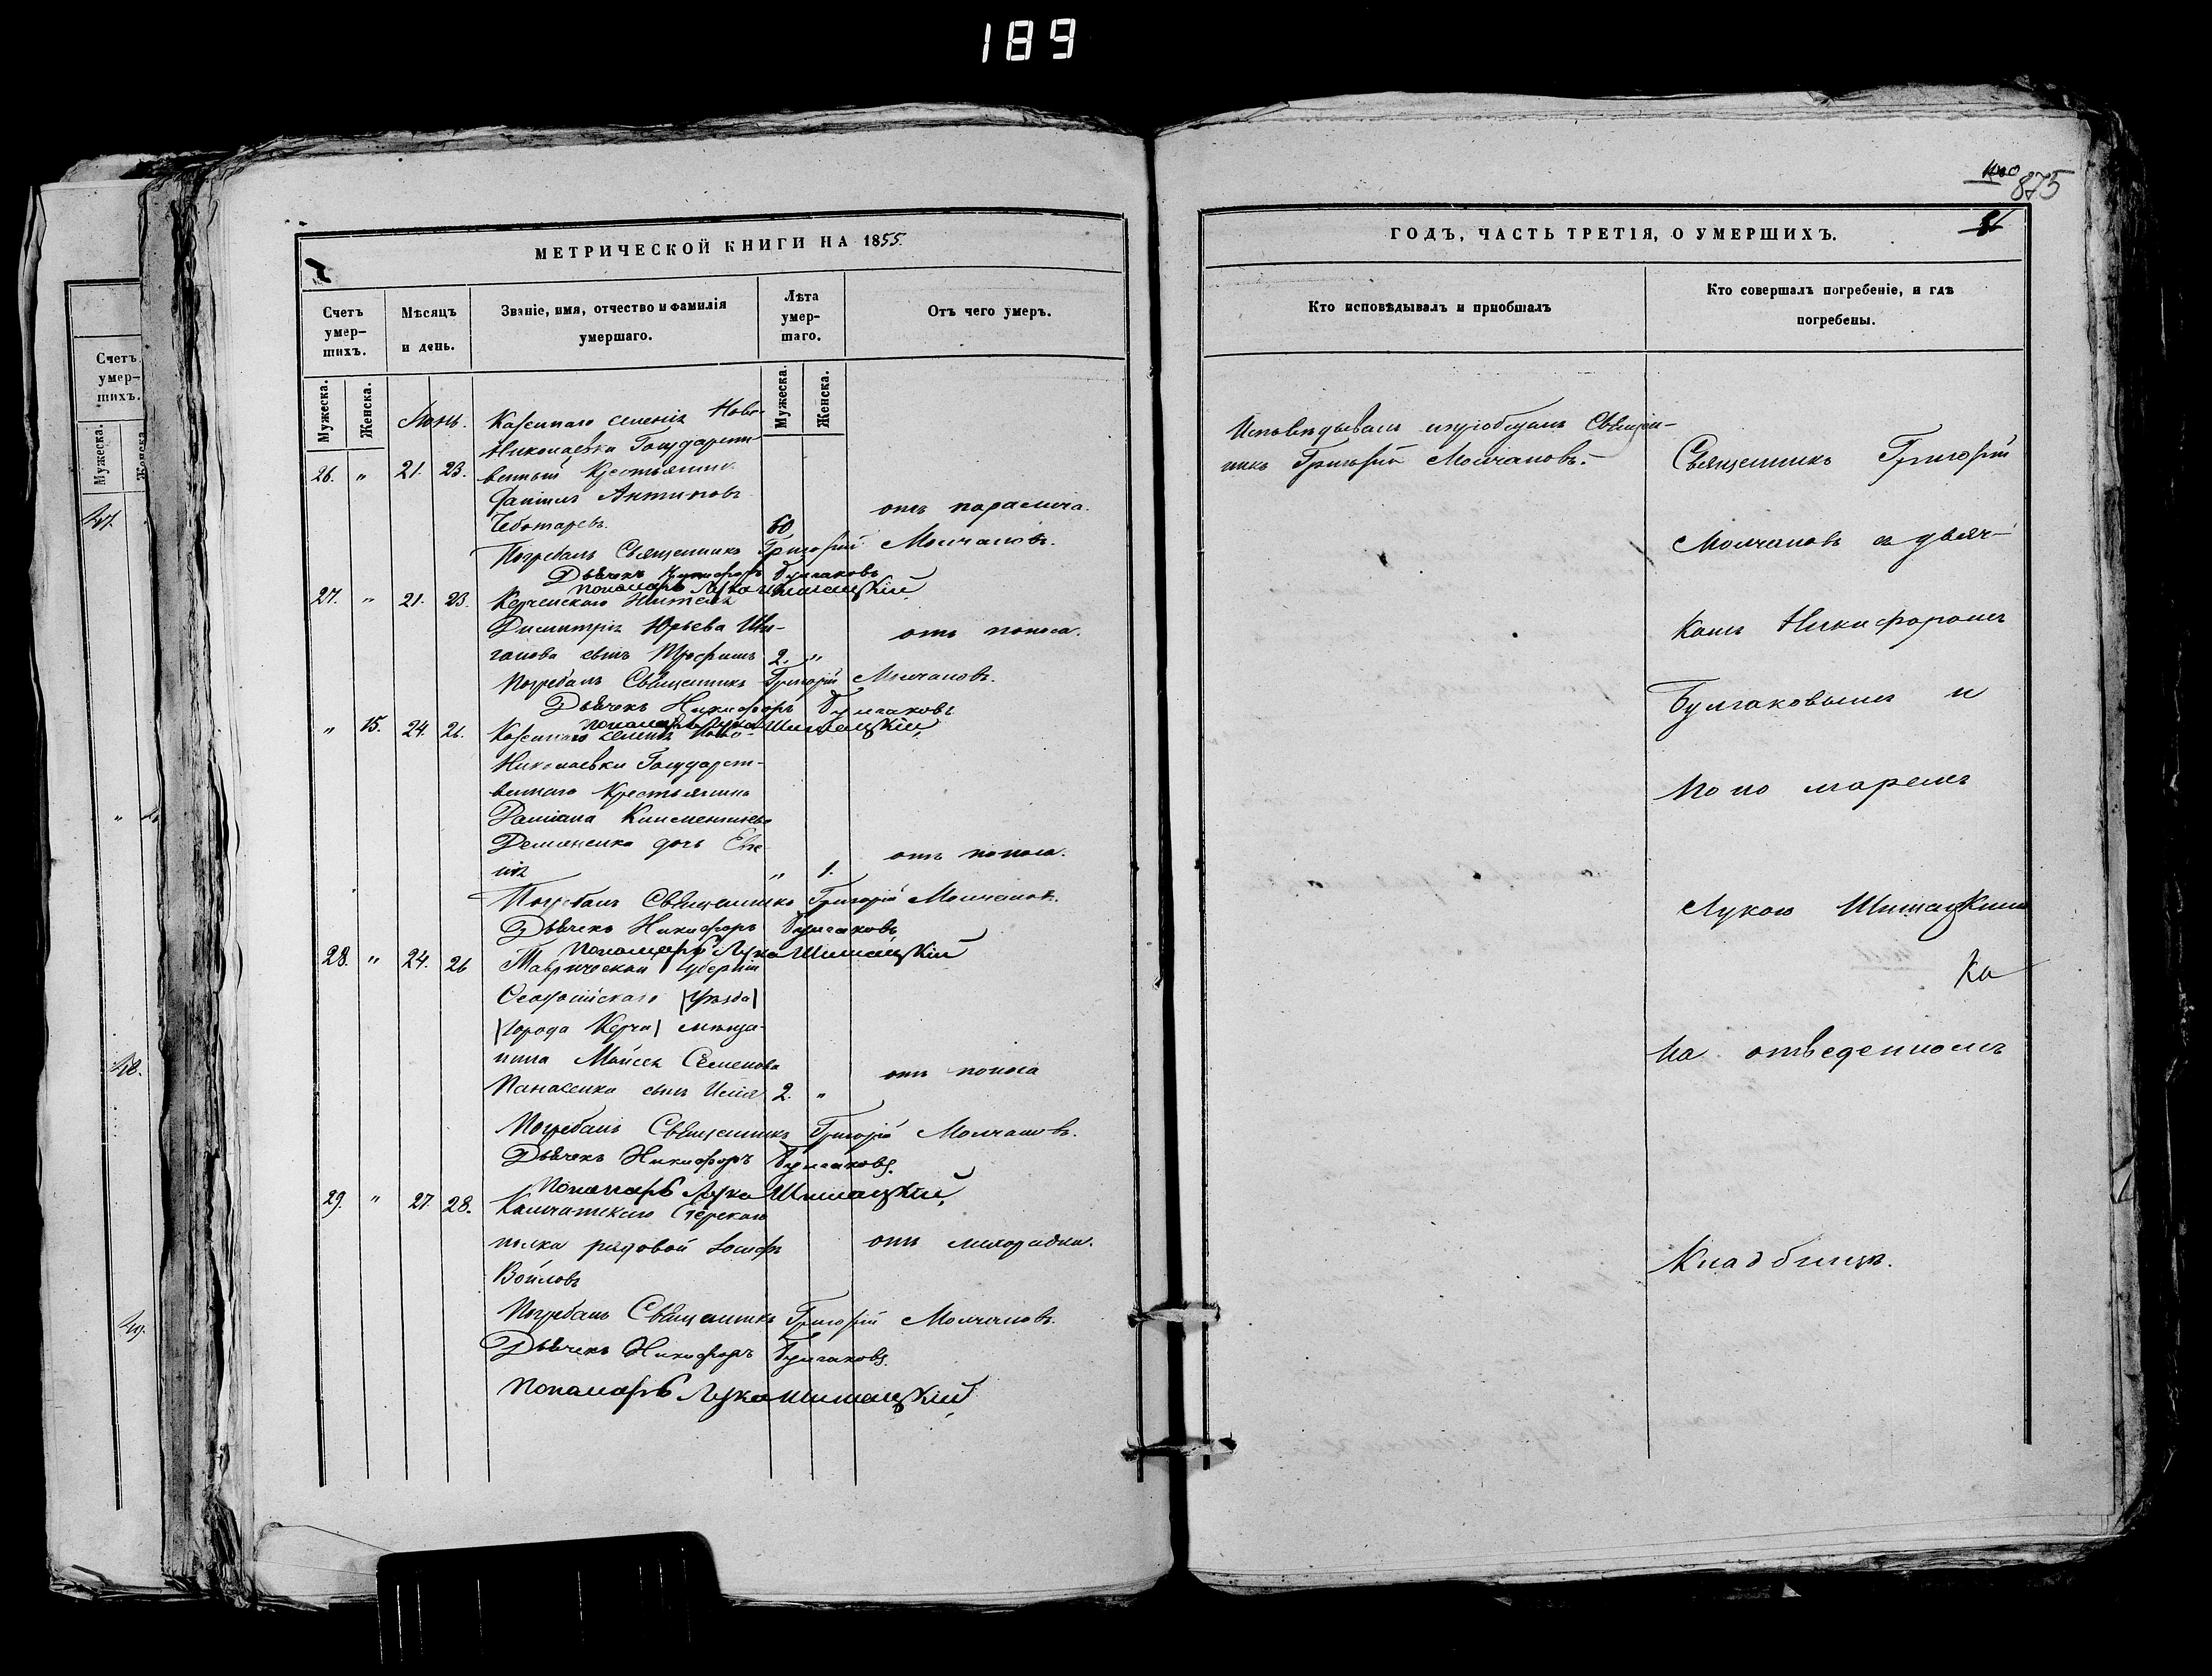 189
МЕТРИЧЕСКОЙ КНИГИ НА 1855.
Счетъ умер-
шихъ.
Мѣсяцъ
и день.
Званіе, имя, отчество и фамилія
умершаго.
Лѣта
умер-
шаго.
Отъ чего умеръ.
Мужеска.
Женска.
Мужеска.
Женска.
Іюнь. Казеннаго селенія Ново-
Николаевки Государст-
26. " 21. 23. венный Крестьянинъ
Даніилъ Антиповъ
Чеботаревъ. 60 отъ паралича.
Погребалъ Священникъ Григорій Молчановъ.
Дьячекъ Никифоръ Булгаковъ
Пономарь Лука Шишацкій
27. " 21. 23. Керченскаго Жителя
Димитрія Юрьева
ганова сынъ Трофимъ 2. " отъ поноса.
Погребалъ Священникъ Григорій Молчановъ.
Дьячекъ Никифоръ Булгаковъ
Пономарь Лука Шишацкій
" 15. 24. 26. Казеннаго селенія Ново-
Николаевки Государст-
веннаго Крестьянина
Даміана Климентьева
Демяненка дочь Евге-
нія " 1. отъ поноса.
Погребалъ Священникъ Григорій Молчановъ.
Дьячекъ Никифоръ Булгаковъ
Пономарь Лука Шишацкій
28. " 24. 26 Таврической Губерніи
Ѳеодосійскаго |Уѣзда|
|города Керчи| мѣща-
нина Моисея Семенова
Панасенка сынъ Илія 2. " отъ поноса
Погребалъ Священникъ Григорій Молчановъ.
Дьячекъ Никифоръ Булгаковъ.
Пономарь Лука Шишацкій
29. " 27. 28. Камчатскаго Егерскаго
полка рядовой Іосифъ отъ лихорадки.
Войловъ
Погребалъ Священникъ Григорій Молчановъ.
Дьячекъ Никифоръ Булгаковъ.
Пономарь Лука Шишацкій
875
ГОДЪ, ЧАСТЬ ТРЕТІЯ, О УМЕРШИХЪ.
Кто исповѣдывалъ и приобщалъ
Кто совершалъ погребеніе, и гдѣ
погребены.
Исповѣдывалъ и пріобщалъ Священ-
никъ Григорій Молчановъ.
Священникъ Григорій
Молчановъ съ дьяч-
комъ Никифоромъ
Булгаковымъ и
Пономаремъ
Лукою Шишацкимъ
на отведенномъ
Кладбищѣ.
Счетъ
умер-
шихъ.
Мужеска.
Женска